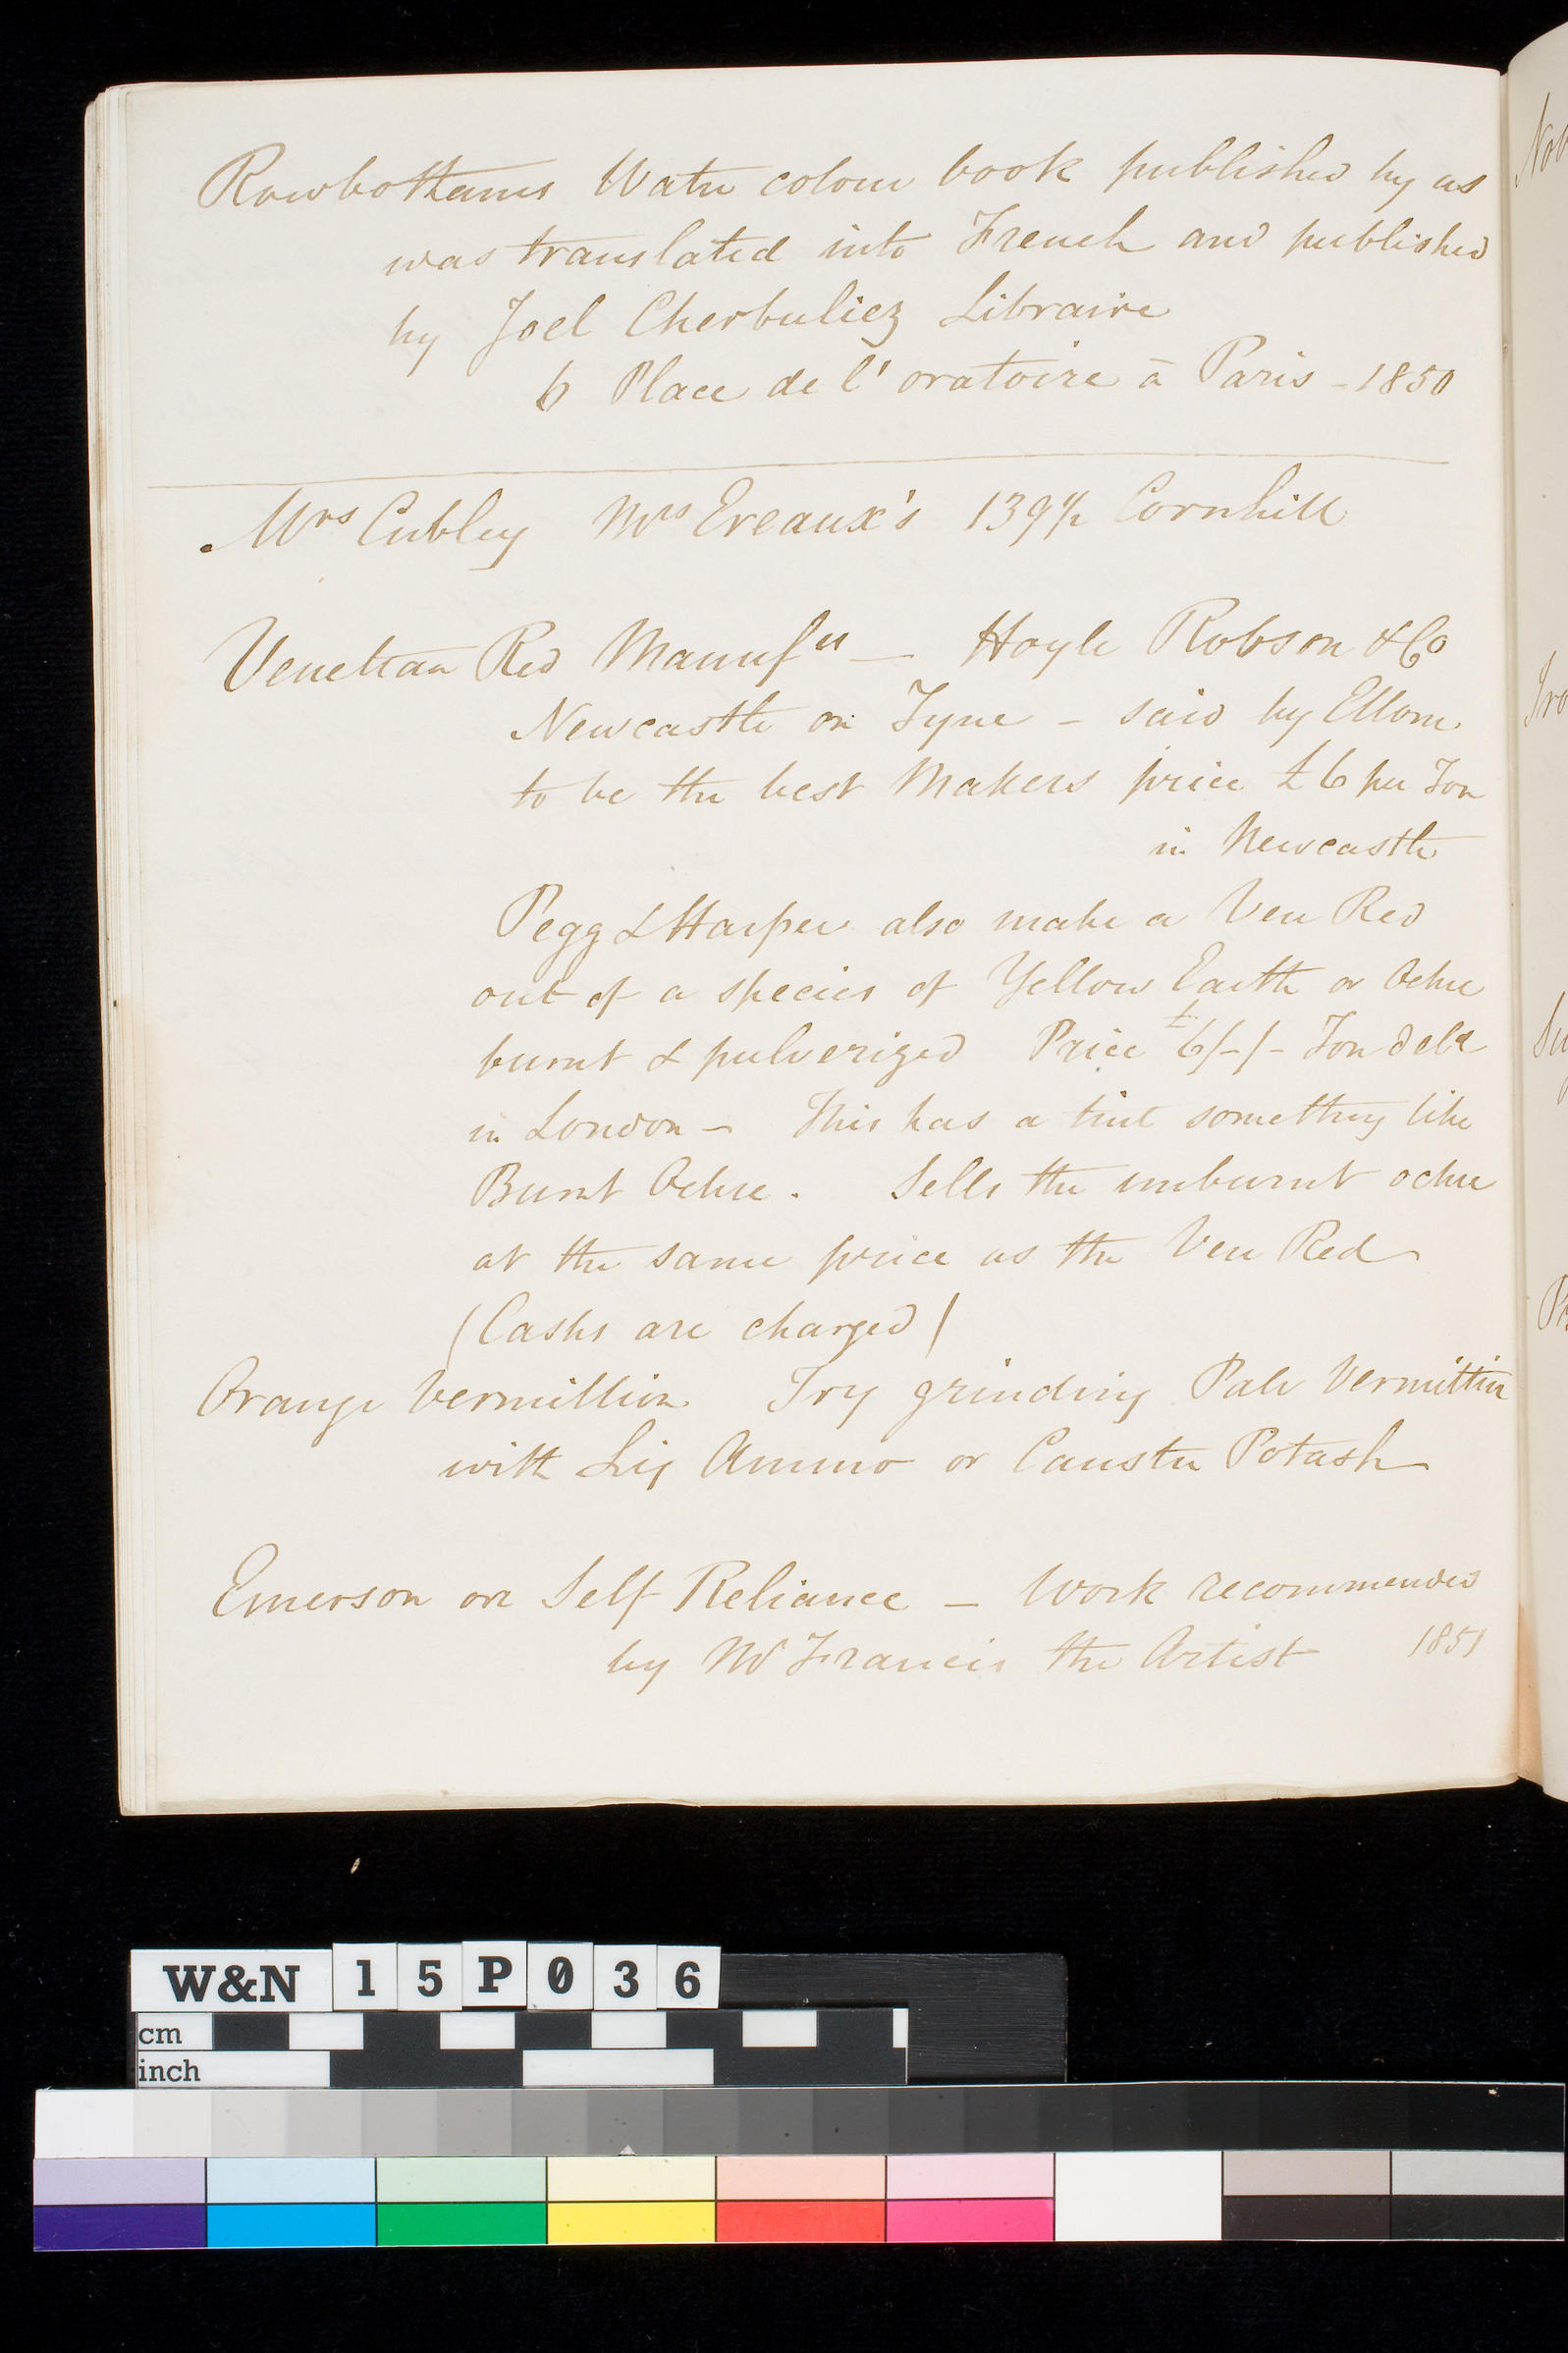 Rowbothams Water colour book published by us
was translated into French and published
by Joel Cherbuliez Libraire
6 Place de l'oratoire à Paris - 1850
Mrs Cubley Mrs Ereaux's 139 1/2 Cornhill
Venetian Red Manufrs — Hoyle Robson & Co
Newcastle on Tyne - said by Ellom
to be the best Makers price £6 per Ton
in Newcastle
Pegg & Harper also make a Ven Red
out of a species of Yellow Earth or Ochre
burnt & pulverized Price £6/-/- Ton deld
in London - This has a tint something like
Burnt Ochre. Sells the unburnt ochre
at the same price as the Ven Red
(Casks are charged)
Orange Vermillion Try grinding Pale Vermillion
with Liq Ammo or Caustic Potash
Emerson on Self Reliance — Work recommended
by Mr Francis the Artist 1851
W&N 15P036
cm
inch